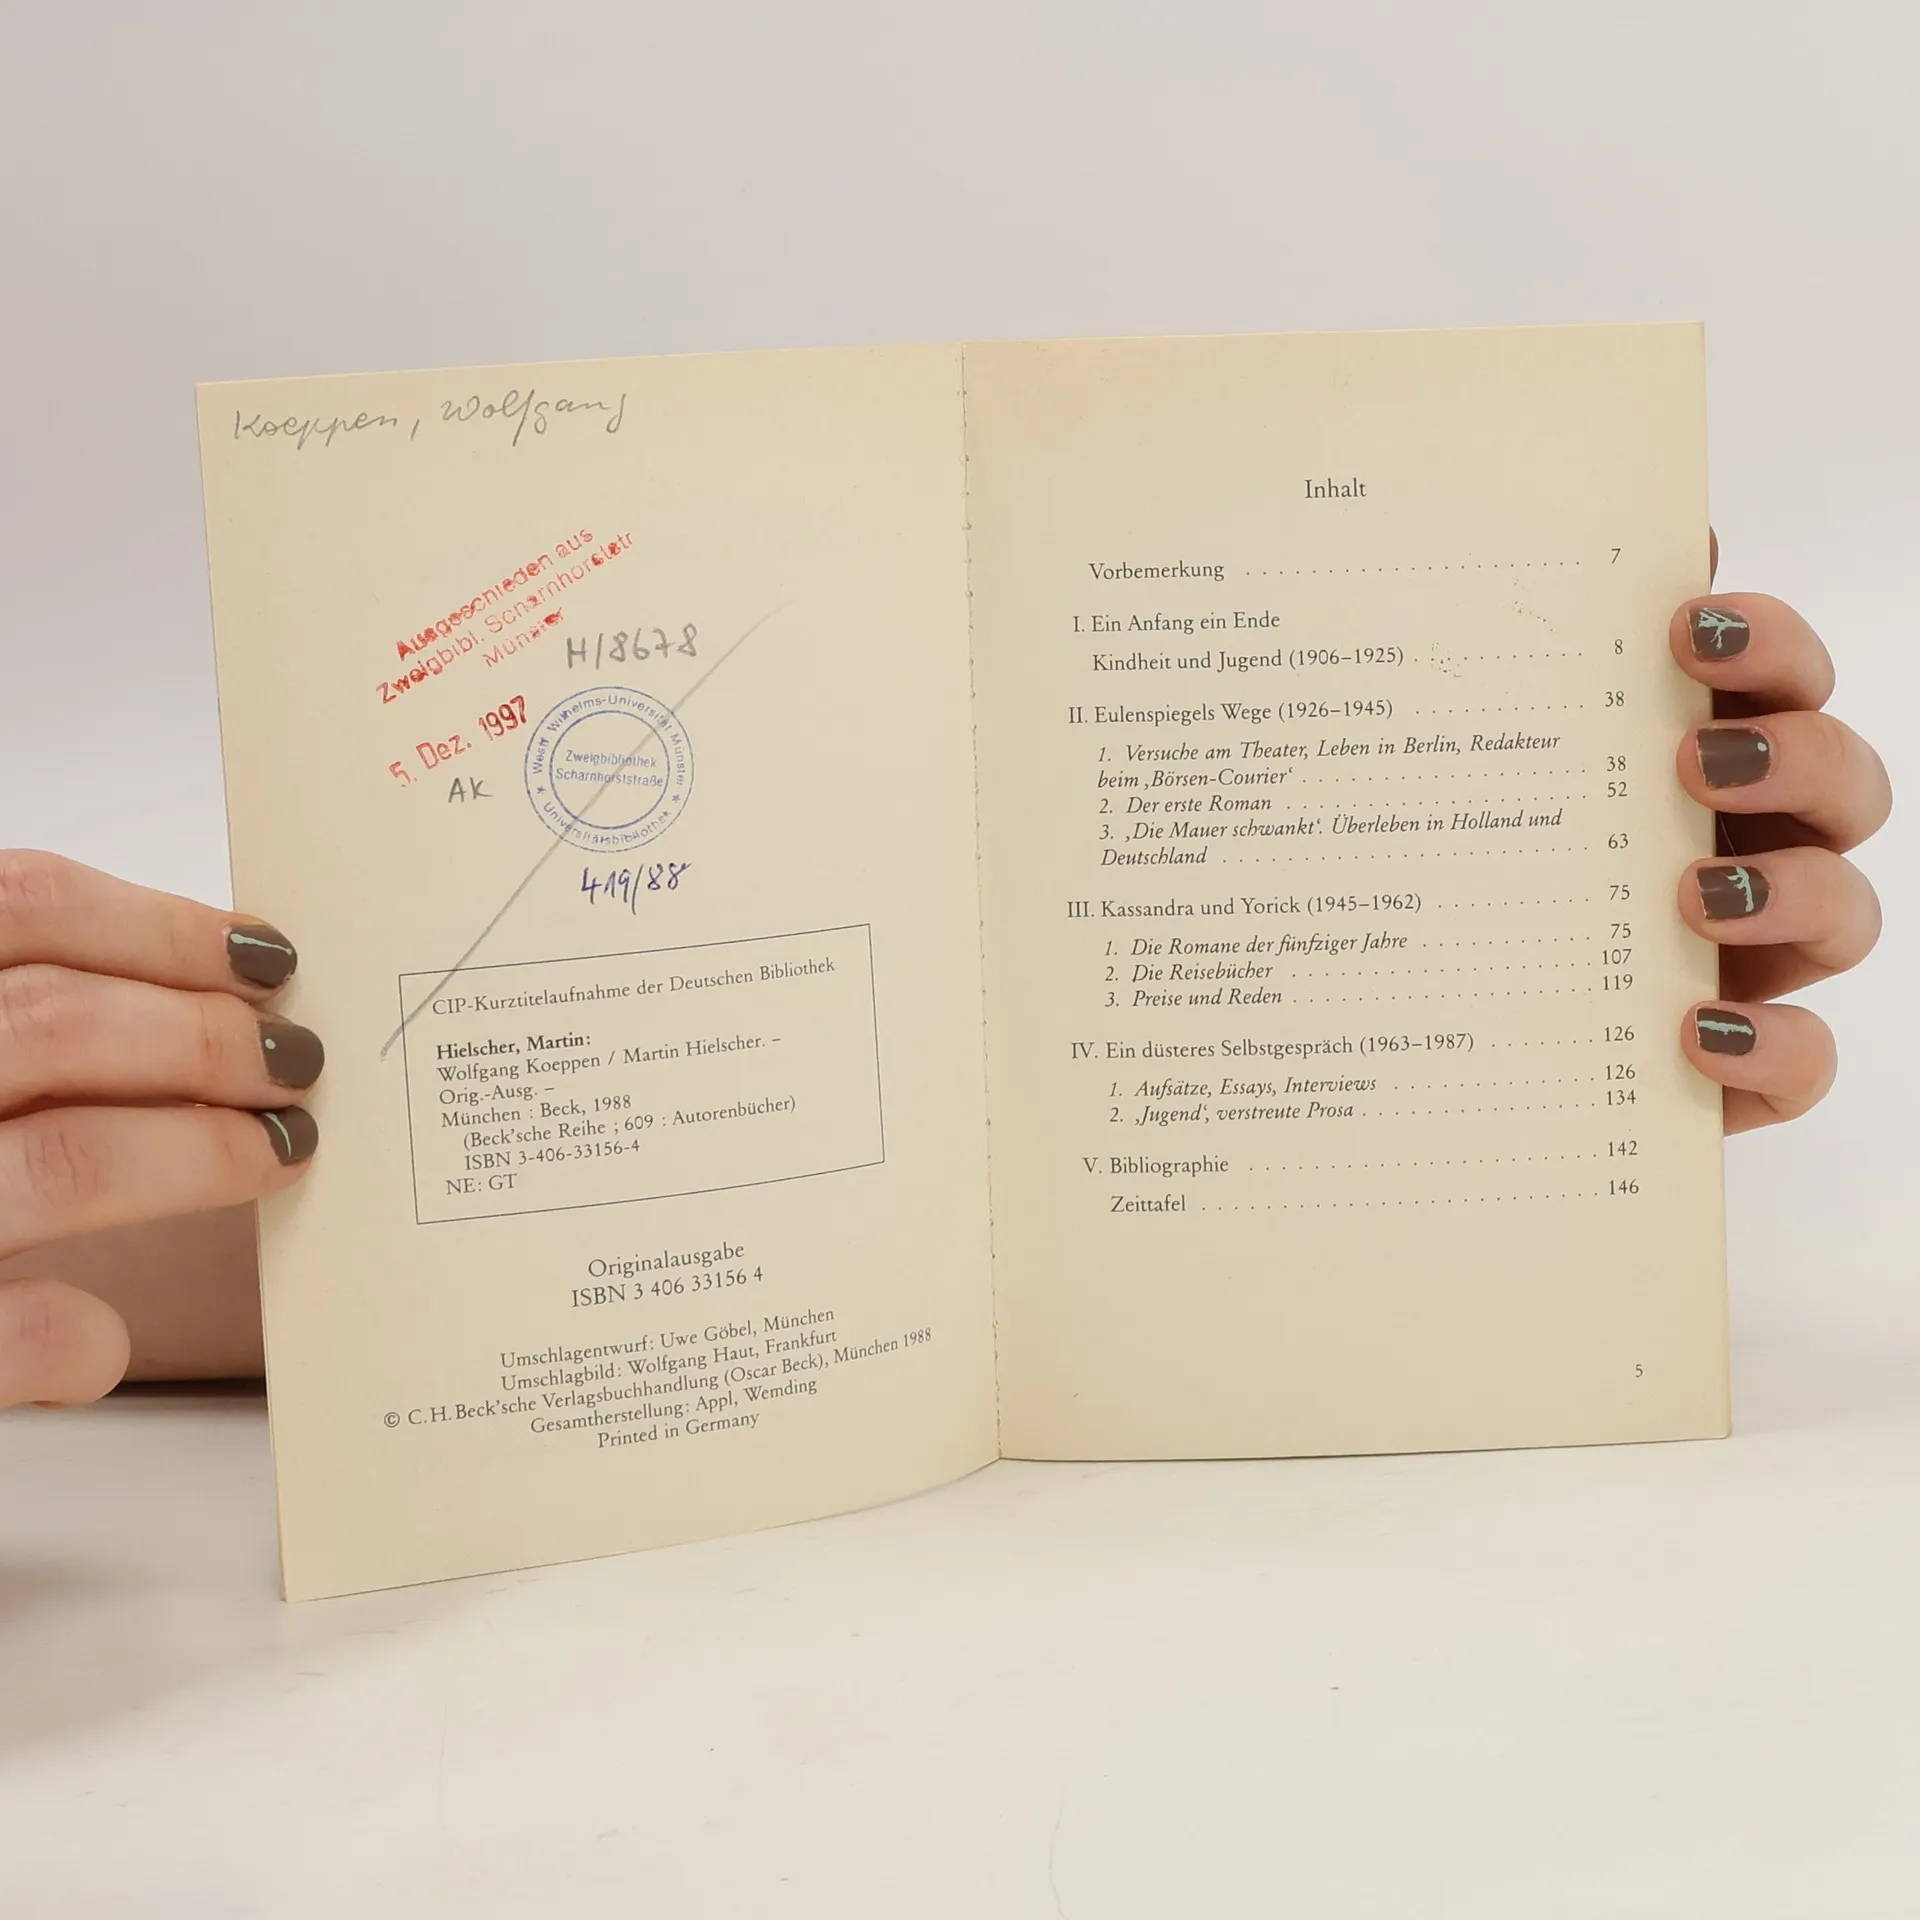 Koeppen, Wolfgang
Ausgeschieden aus
Zweigbibl. Scharnhorststr
Münster
H/8678
5. Dez. 1997
AK
Westf. Wilhelms-Universität Münster
Zweigbibliothek
Scharnhorststraße
★ Universitätsbibliothek ★
419/88
CIP-Kurztitelaufnahme der Deutschen Bibliothek
Hielscher, Martin:
Wolfgang Koeppen / Martin Hielscher. –
Orig.-Ausg. –
München : Beck, 1988
(Beck'sche Reihe ; 609 : Autorenbücher)
ISBN 3-406-33156-4
NE: GT
Originalausgabe
ISBN 3 406 33156 4
Umschlagentwurf: Uwe Göbel, München
Umschlagbild: Wolfgang Haut, Frankfurt
© C.H.Beck'sche Verlagsbuchhandlung (Oscar Beck), München 1988
Gesamtherstellung: Appl, Wemding
Printed in Germany
Inhalt
Vorbemerkung . . . . . . . . . . . . . . . . . . . . . 7
I. Ein Anfang ein Ende
Kindheit und Jugend (1906–1925) . . . . . . . . . . . 8
II. Eulenspiegels Wege (1926–1945) . . . . . . . . . . . 38
1. Versuche am Theater, Leben in Berlin, Redakteur
beim ‚Börsen-Courier‘ . . . . . . . . . . . . . . . . . . 38
2. Der erste Roman . . . . . . . . . . . . . . . . . . . 52
3. ‚Die Mauer schwankt‘. Überleben in Holland und
Deutschland . . . . . . . . . . . . . . . . . . . . . . . 63
III. Kassandra und Yorick (1945–1962) . . . . . . . . . . 75
1. Die Romane der fünfziger Jahre . . . . . . . . . . . 75
2. Die Reisebücher . . . . . . . . . . . . . . . . . . . 107
3. Preise und Reden . . . . . . . . . . . . . . . . . . . 119
IV. Ein düsteres Selbstgespräch (1963–1987) . . . . . . . 126
1. Aufsätze, Essays, Interviews . . . . . . . . . . . . . 126
2. ‚Jugend‘, verstreute Prosa . . . . . . . . . . . . . . . 134
V. Bibliographie . . . . . . . . . . . . . . . . . . . . . . 142
Zeittafel . . . . . . . . . . . . . . . . . . . . . . . . . 146
5